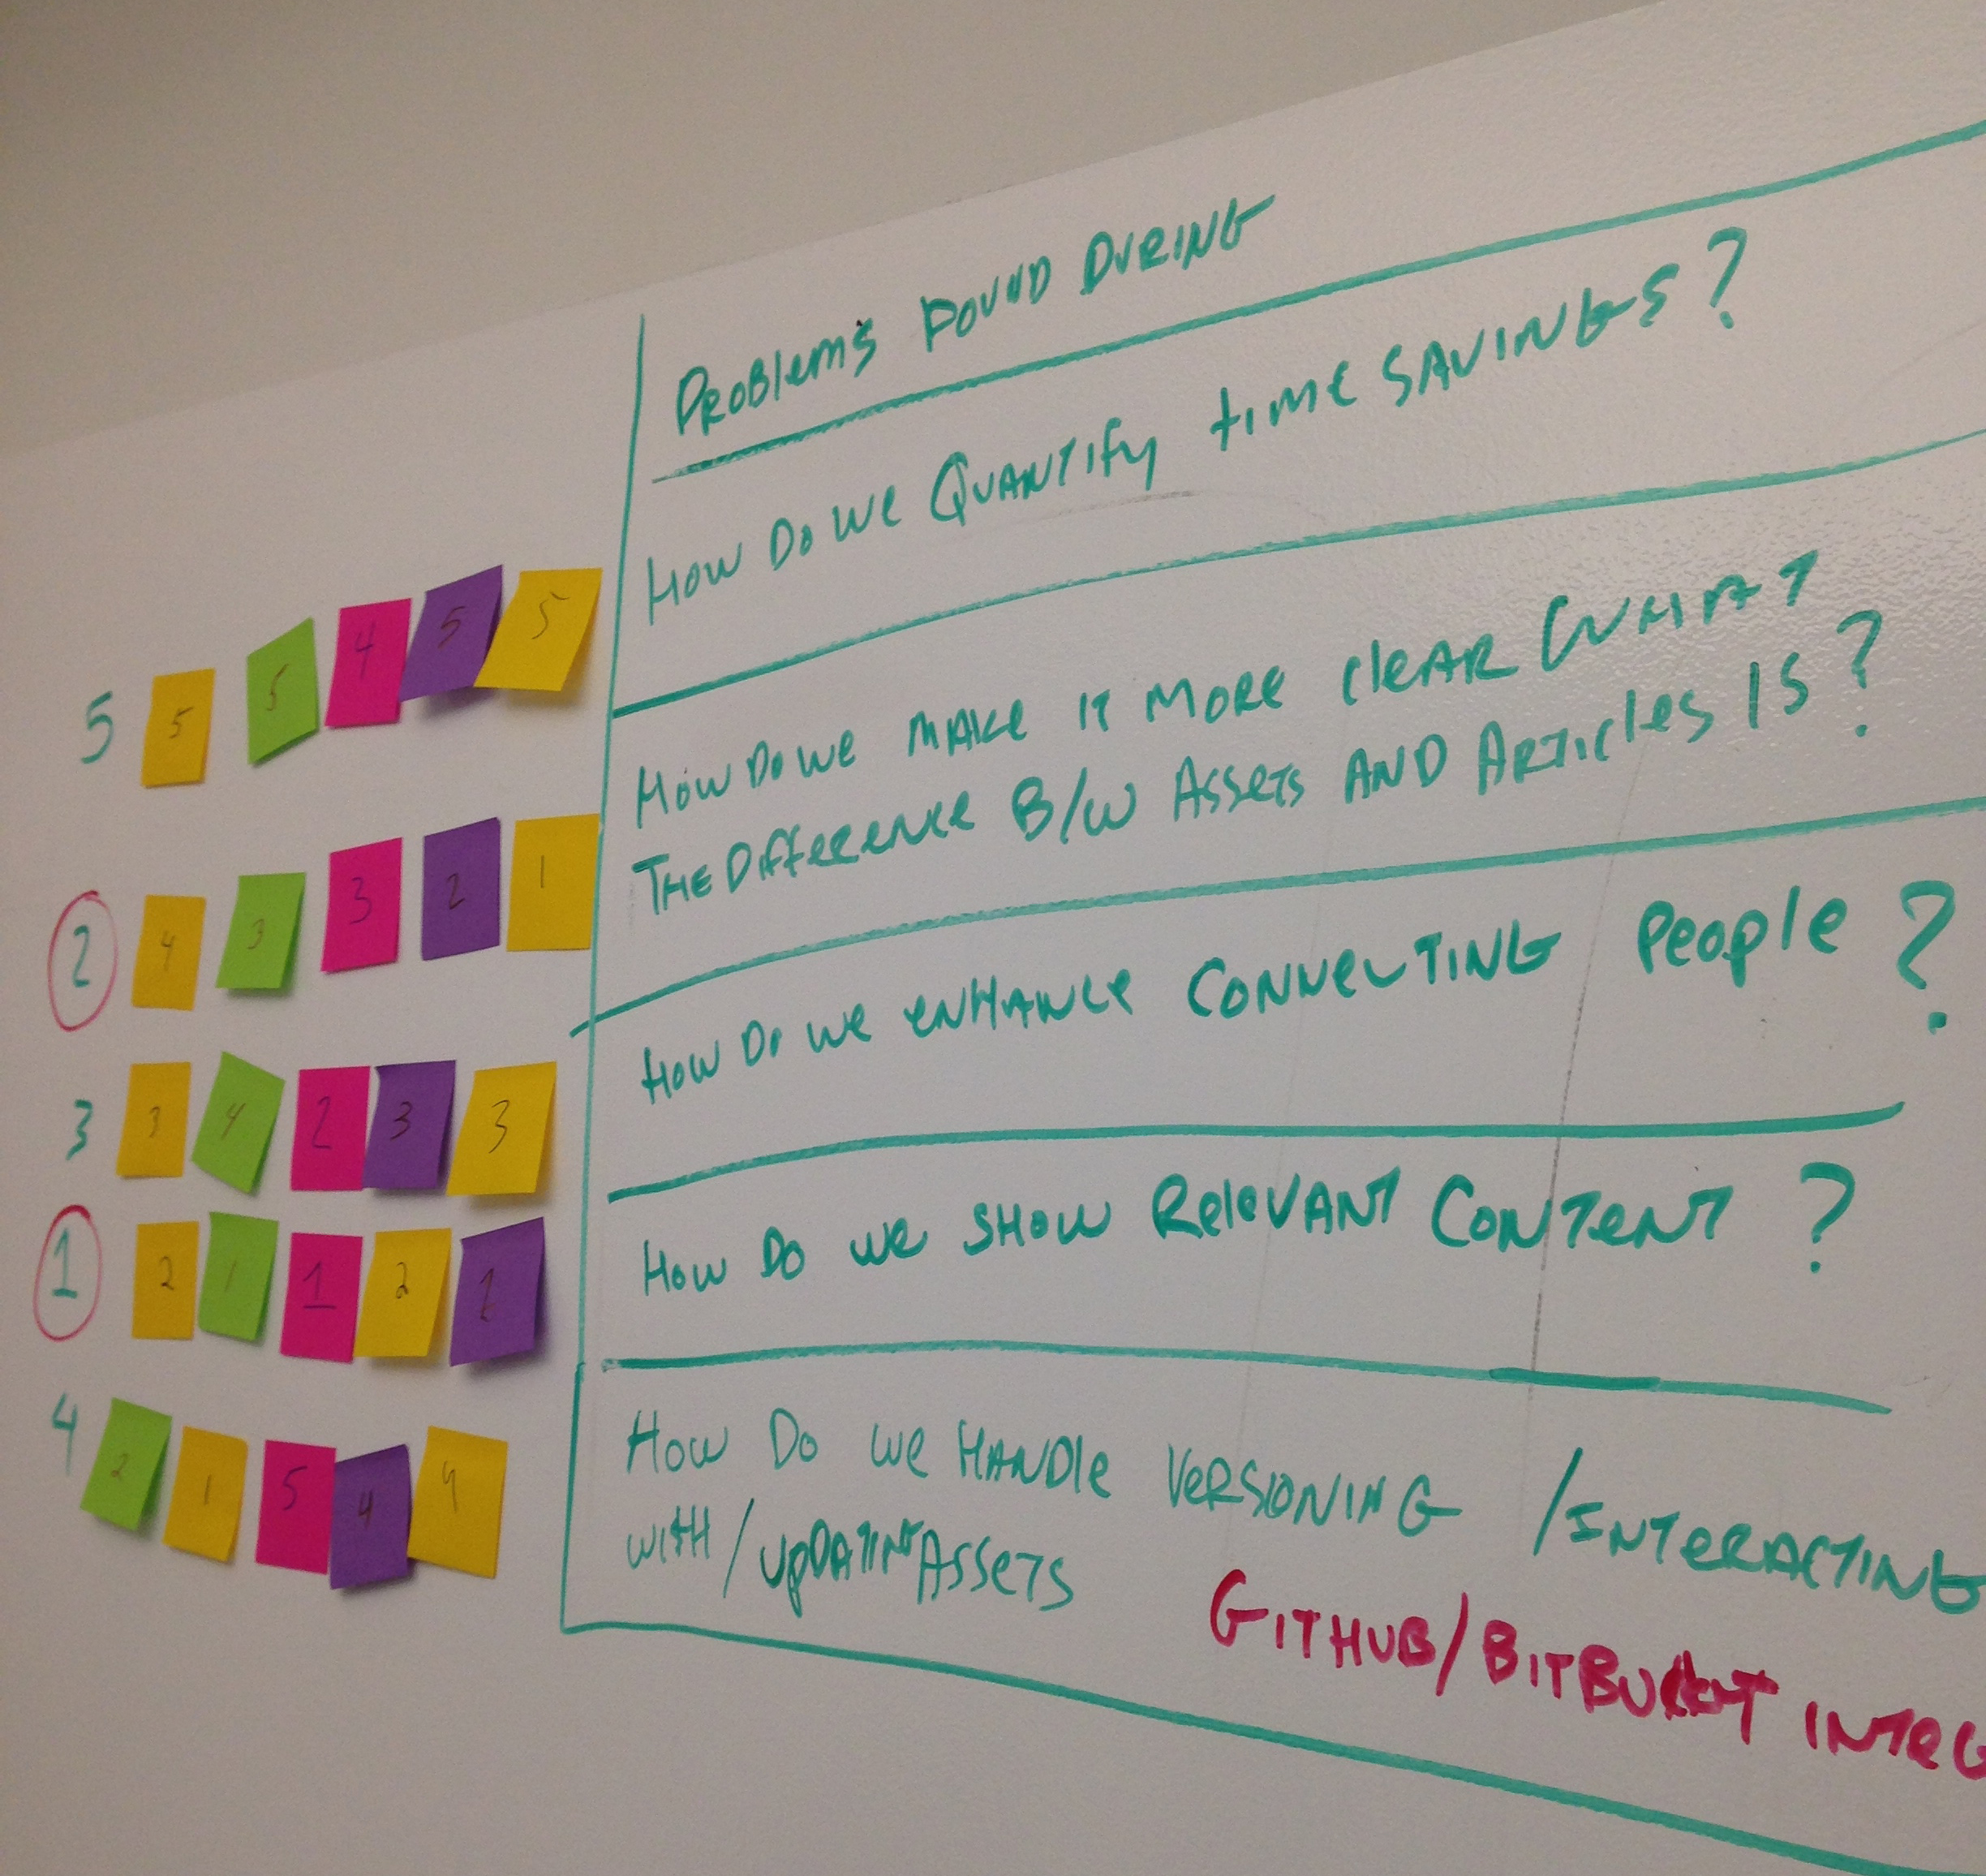 Problems Found During
How Do we Quantify time savings?
5 5 5 4 5 5
How Do we make it more clear what
The Difference B/W Assets and Articles is?
2 4 3 3 2 1
How Do we enhance connecting people?
3 3 4 2 3 3
How Do we show Relevant Content?
1 2 1 1 2
How Do we Handle Versioning / Interacting
with / updating Assets
4 2 1 5 4 4
GitHub/BitBucket